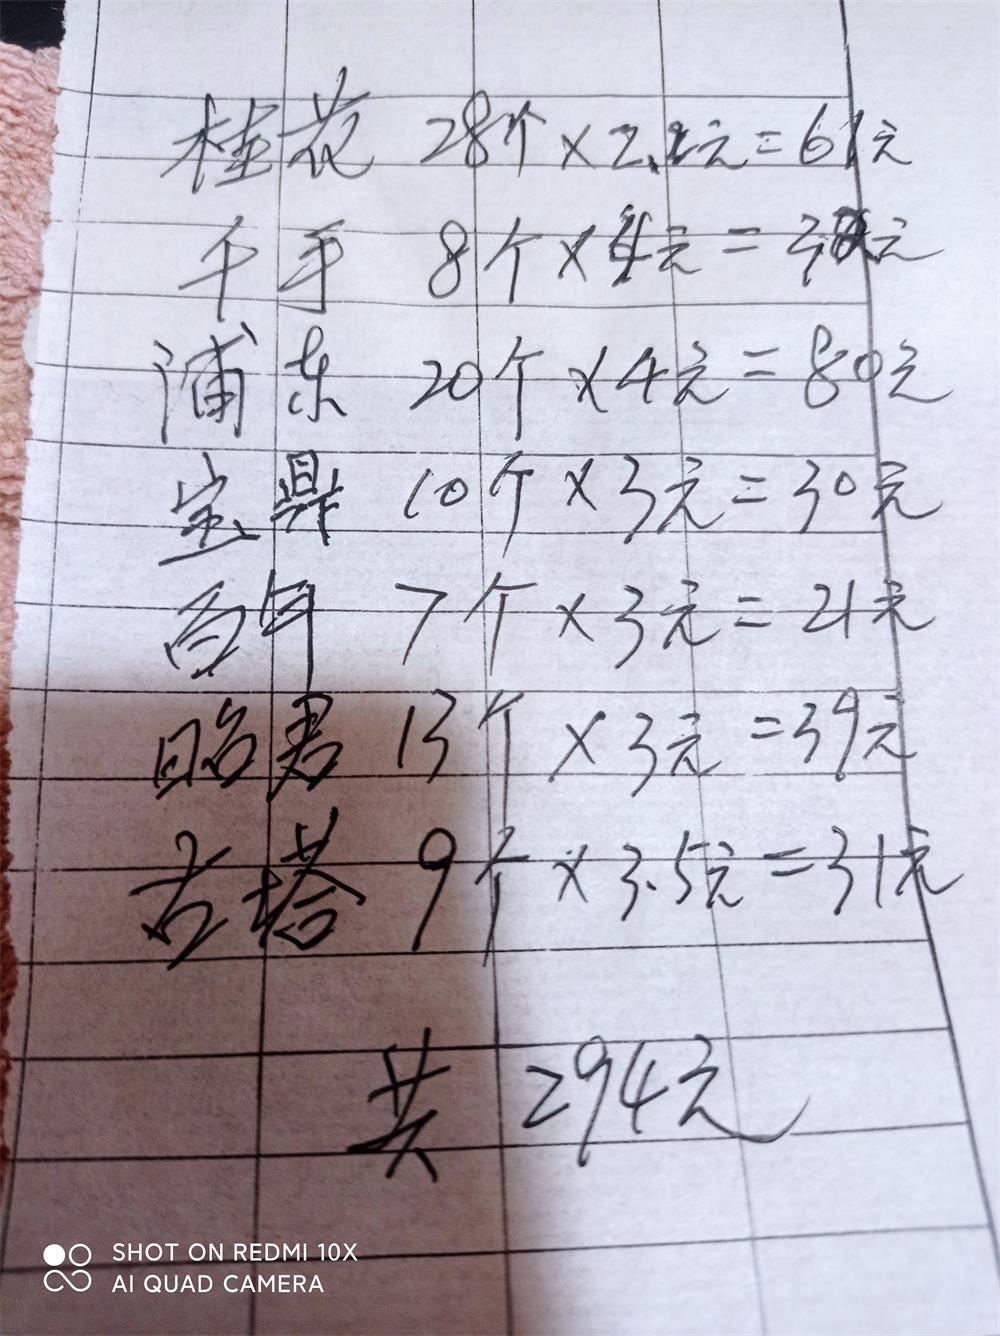 桂花 28个×2.2元=61元
千手 8个×4元=32元
浦东 20个×4元=80元
宝鼎 10个×3元=30元
百年 7个×3元=21元
昭君 13个×3元=39元
古塔 9个×3.5元=31元
共 294元
SHOT ON REDMI 10X
AI QUAD CAMERA